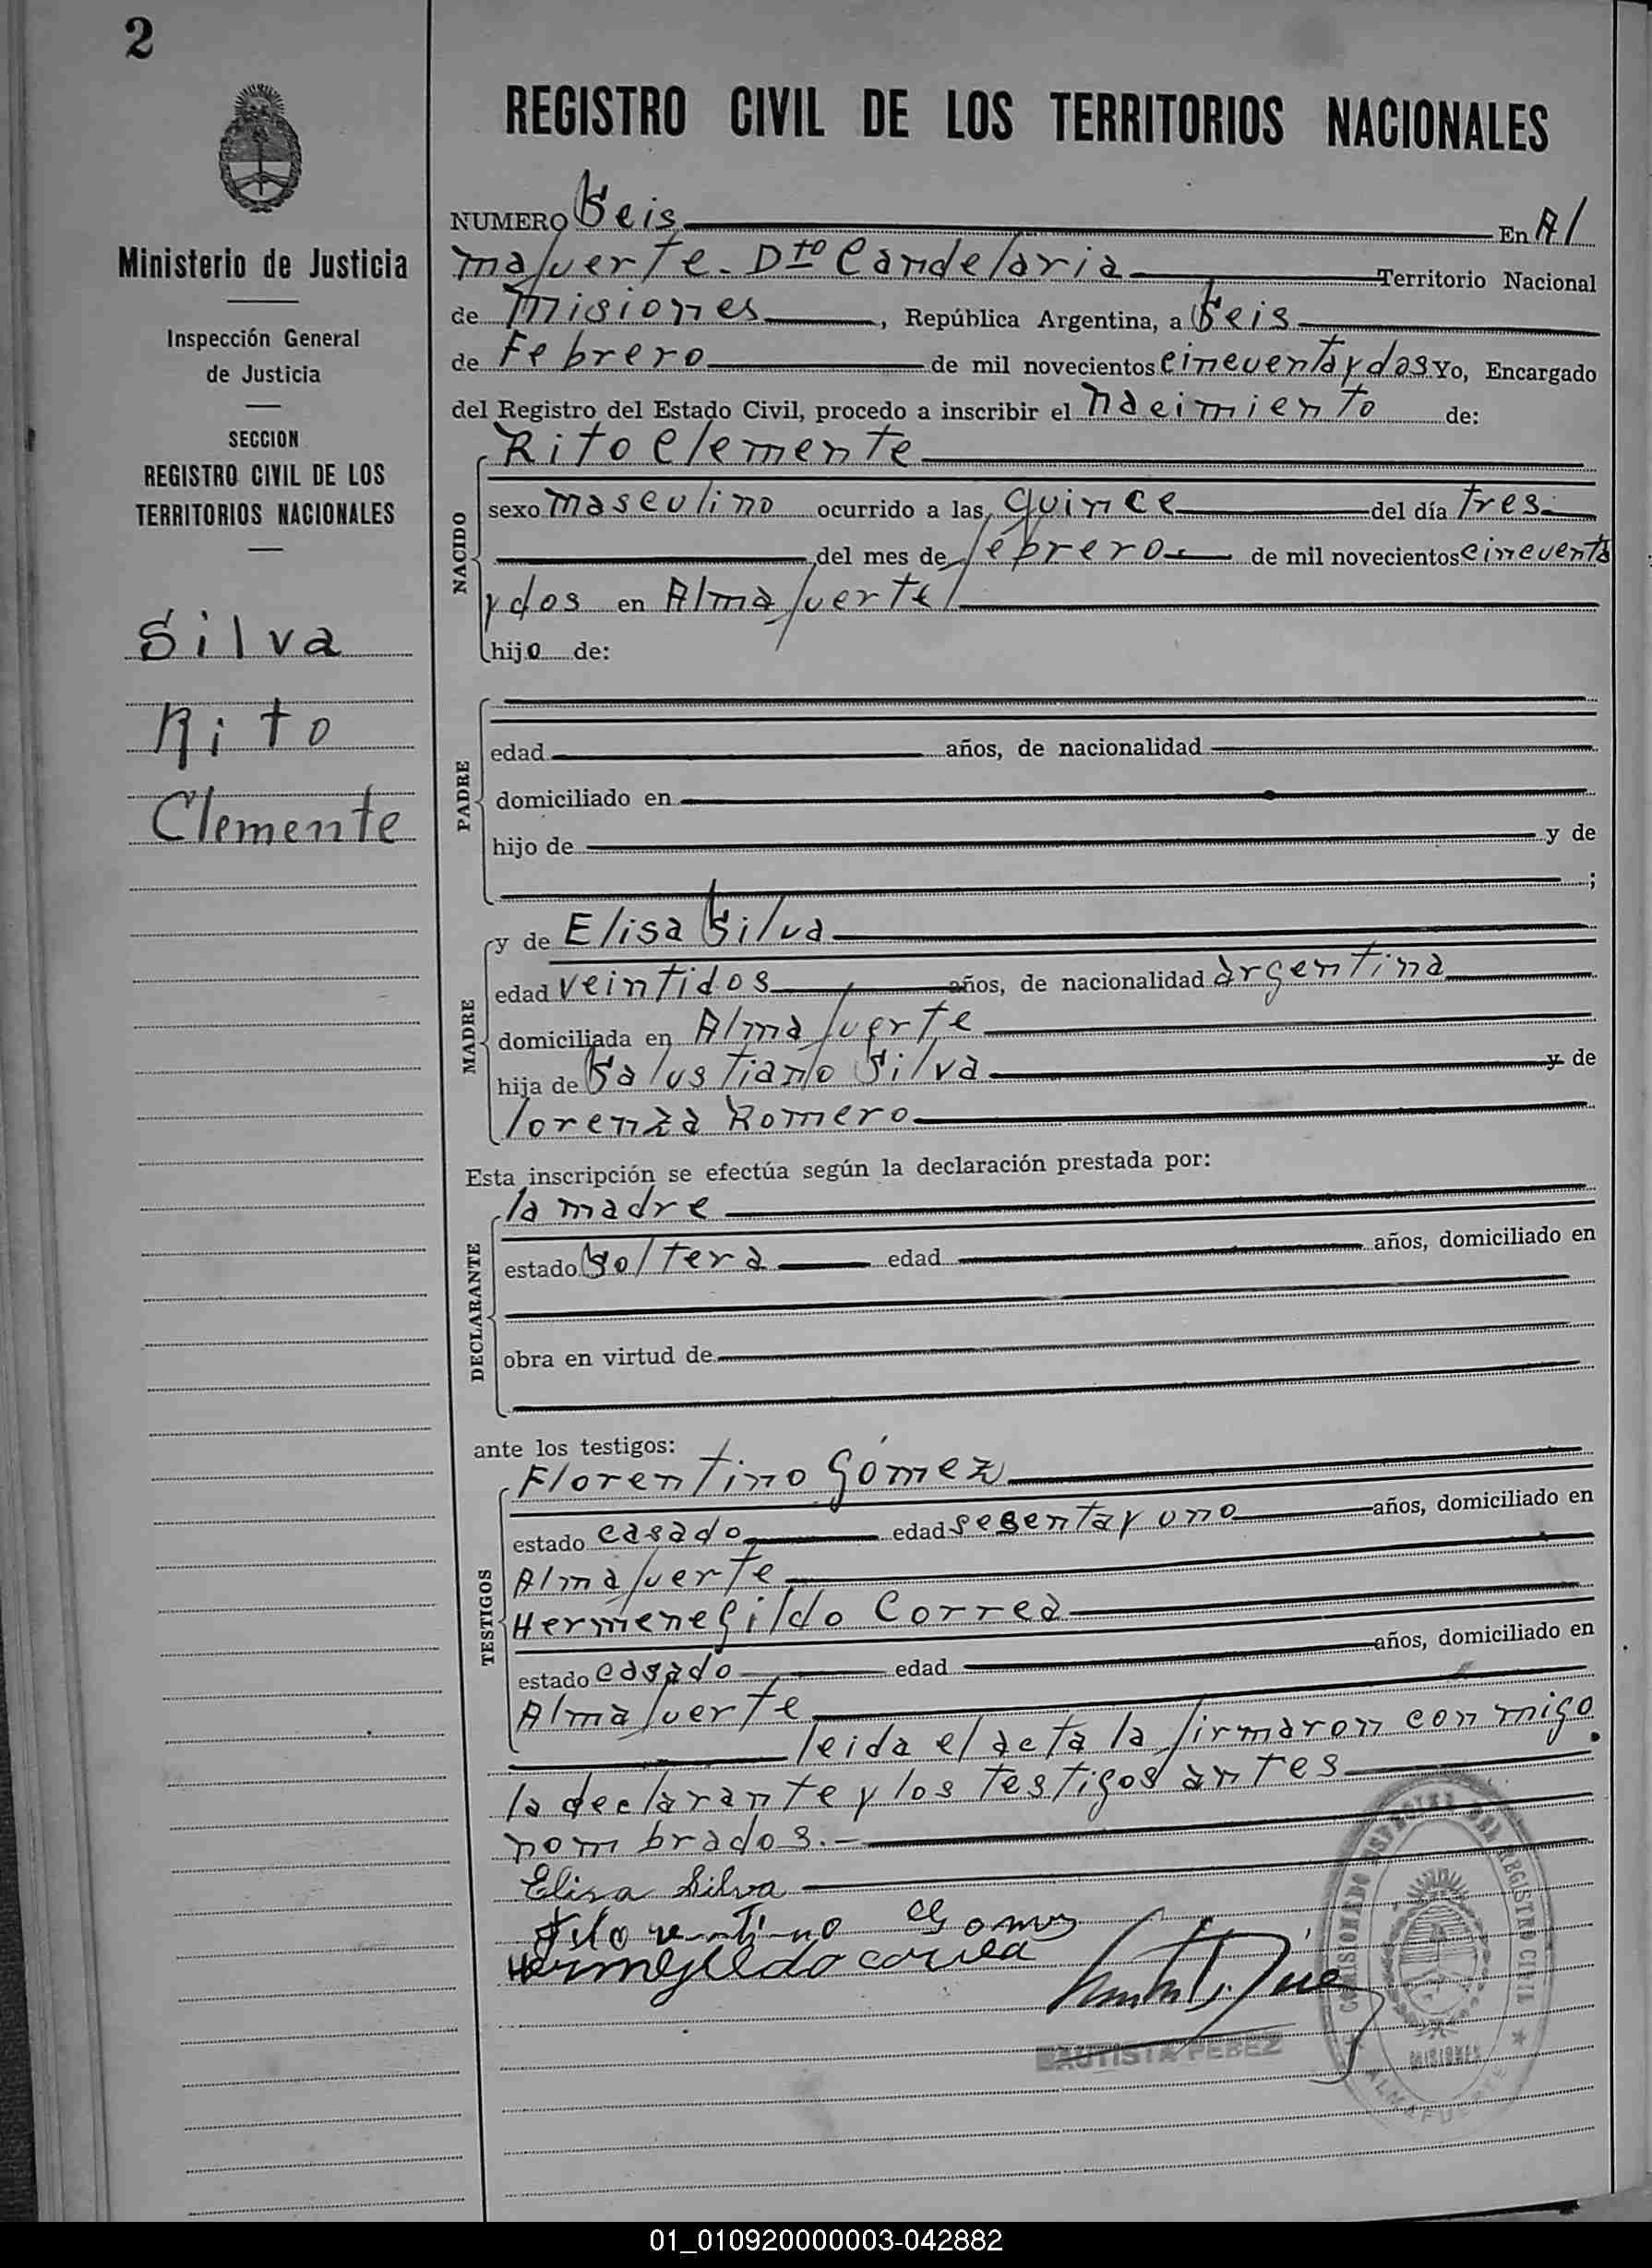 2
REGISTRO CIVIL DE LOS TERRITORIOS NACIONALES
Ministerio de Justicia
Inspección General
de Justicia
SECCION
REGISTRO CIVIL DE LOS
TERRITORIOS NACIONALES
Silva
Rito
Clemente
NUMERO Seis En Al
mafuerte. Dto Candelaria Territorio Nacional
de Misiones, República Argentina, a Seis
de Febrero de mil novecientos cincuenta y dos Yo, Encargado
del Registro del Estado Civil, procedo a inscribir el nacimiento de:
Rito Clemente
NACIDO
sexo masculino ocurrido a las quince del día tres
del mes de febrero de mil novecientos cincuenta
y dos en Almafuerte
hijo de:
PADRE
edad años, de nacionalidad
domiciliado en
hijo de y de
;
MADRE
y de Elisa Silva
edad veintidos años, de nacionalidad argentina
domiciliada en Almafuerte
hija de Salustiano Silva y de
lorenza Romero
Esta inscripción se efectúa según la declaración prestada por:
DECLARANTE
la madre
estado Soltera edad años, domiciliado en
obra en virtud de
ante los testigos:
TESTIGOS
Florentino Gómez
estado casado edad sesenta y uno años, domiciliado en
Almafuerte
Hermenegildo Correa
estado casado edad años, domiciliado en
Almafuerte
leida el acta la firmaron con migo
la declarante y los testigos antes
nombrados.-
Elisa Silva
Florentino Gomez
Hermegildo correa
BAUTISTA PEREZ
REGISTRO CIVIL
MISIONES
ALMAFUERTE
01_010920000003-042882